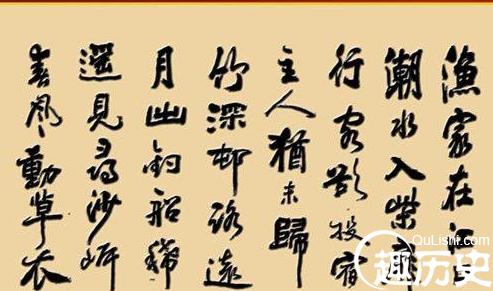 漁家在江口
潮水入柴扉
行客欲投宿
主人猶未歸
竹深邨路遠
月出釣船稀
遥見尋沙岸
春風動草衣
QuLishi.com
趣历史